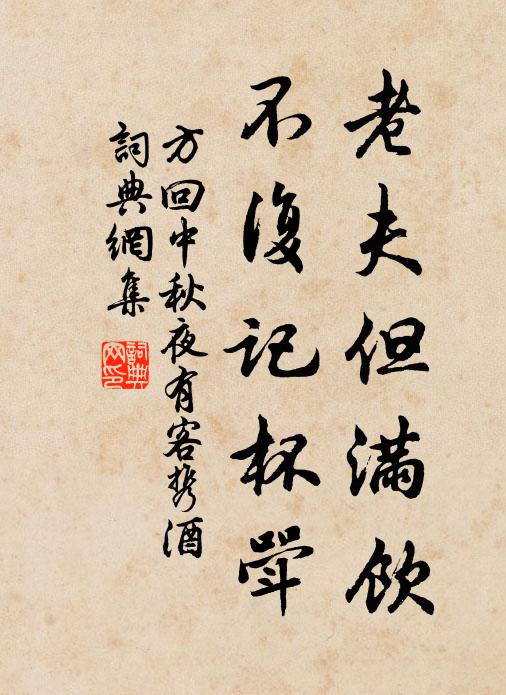 老夫但滿飲
不復記杯斝
方回中秋夜有客携酒
詞典網集
詞典網印